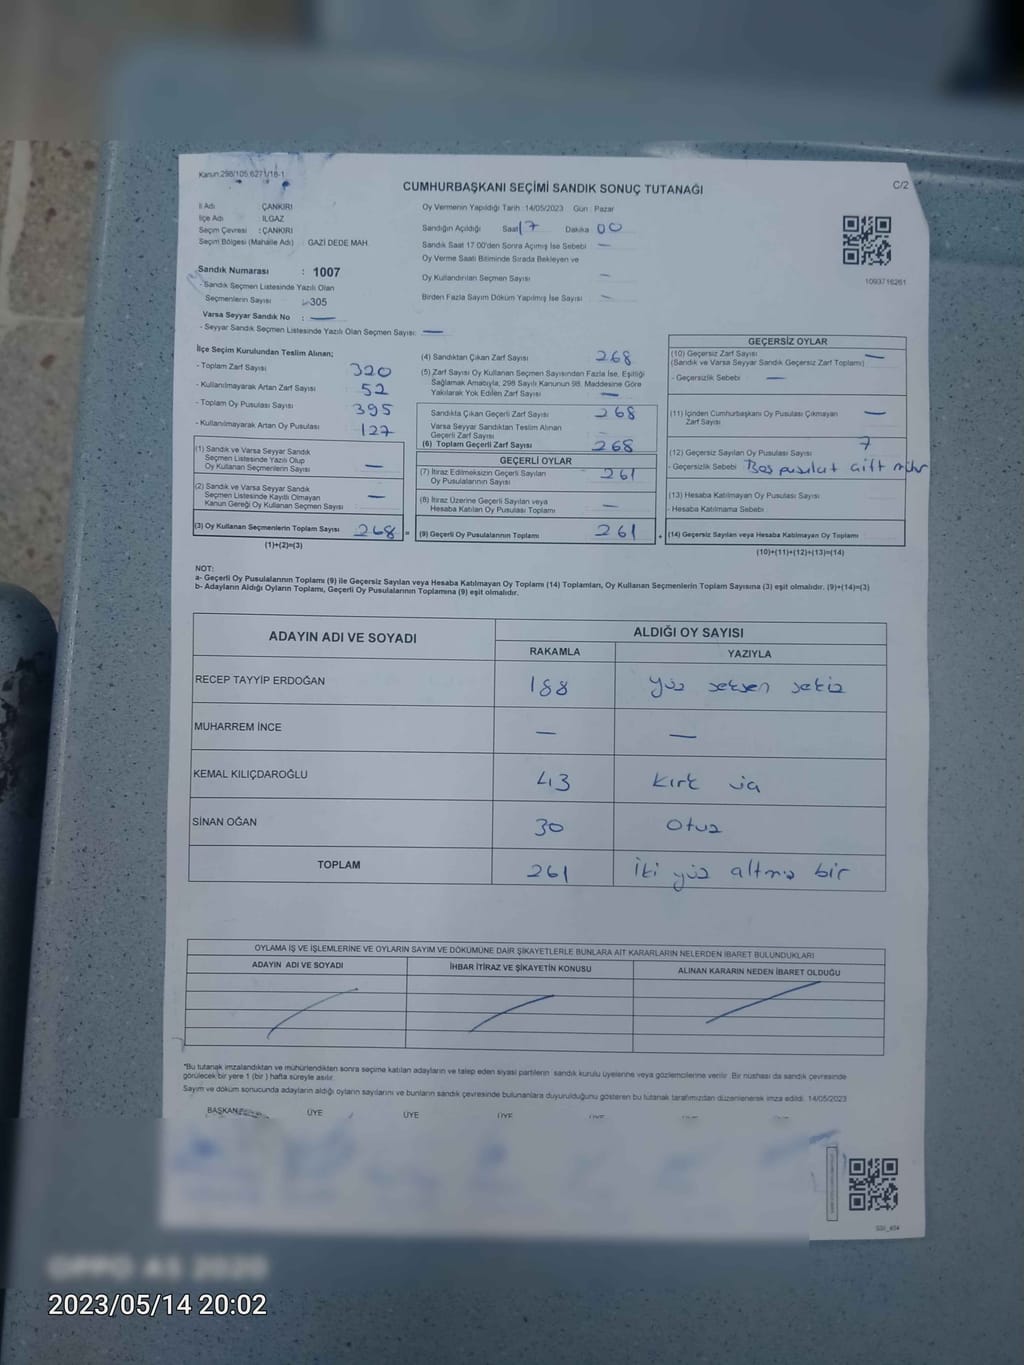 Kanun:298/105,6271/18-1
C/2
CUMHURBAŞKANI SEÇİMİ SANDIK SONUÇ TUTANAĞI
İl Adı : ÇANKIRI
İlçe Adı : ILGAZ
Seçim Çevresi : ÇANKIRI
Seçim Bölgesi (Mahalle Adı) : GAZİ DEDE MAH.
Oy Vermenin Yapıldığı Tarih : 14/05/2023 Gün : Pazar
Sandığın Açıldığı Saat 17 Dakika 00
Sandık Saat 17:00'den Sonra Açılmış İse Sebebi —
Oy Verme Saati Bitiminde Sırada Bekleyen ve
Oy Kullandırılan Seçmen Sayısı —
Birden Fazla Sayım Döküm Yapılmış İse Sayısı —
1093716261
Sandık Numarası : 1007
- Sandık Seçmen Listesinde Yazılı Olan
Seçmenlerin Sayısı : 305
Varsa Seyyar Sandık No : —
- Seyyar Sandık Seçmen Listesinde Yazılı Olan Seçmen Sayısı: —
İlçe Seçim Kurulundan Teslim Alınan;
- Toplam Zarf Sayısı 320
- Kullanılmayarak Artan Zarf Sayısı 52
- Toplam Oy Pusulası Sayısı 395
- Kullanılmayarak Artan Oy Pusulası 127
(1) Sandık ve Varsa Seyyar Sandık
Seçmen Listesinde Yazılı Olup
Oy Kullanan Seçmenlerin Sayısı —
(2) Sandık ve Varsa Seyyar Sandık
Seçmen Listesinde Kayıtlı Olmayan
Kanun Gereği Oy Kullanan Seçmen Sayısı —
(3) Oy Kullanan Seçmenlerin Toplam Sayısı 268 =
(1)+(2)=(3)
(4) Sandıktan Çıkan Zarf Sayısı 268
(5) Zarf Sayısı Oy Kullanan Seçmen Sayısından Fazla İse, Eşitliği
Sağlamak Amacıyla, 298 Sayılı Kanunun 98. Maddesine Göre
Yakılarak Yok Edilen Zarf Sayısı —
Sandıkta Çıkan Geçerli Zarf Sayısı 268
Varsa Seyyar Sandıktan Teslim Alınan
Geçerli Zarf Sayısı
(6) Toplam Geçerli Zarf Sayısı 268
GEÇERLİ OYLAR
(7) İtiraz Edilmeksizin Geçerli Sayılan
Oy Pusulalarının Sayısı 261
(8) İtiraz Üzerine Geçerli Sayılan veya
Hesaba Katılan Oy Pusulası Toplamı —
(9) Geçerli Oy Pusulalarının Toplamı 261 +
GEÇERSİZ OYLAR
(10) Geçersiz Zarf Sayısı —
(Sandık ve Varsa Seyyar Sandık Geçersiz Zarf Toplamı)
- Geçersizlik Sebebi —
(11) İçinden Cumhurbaşkanı Oy Pusulası Çıkmayan —
Zarf Sayısı
(12) Geçersiz Sayılan Oy Pusulası Sayısı 7
- Geçersizlik Sebebi Boş pusulat çift mühr
(13) Hesaba Katılmayan Oy Pusulası Sayısı
- Hesaba Katılmama Sebebi
(14) Geçersiz Sayılan veya Hesaba Katılmayan Oy Toplamı
(10)+(11)+(12)+(13)=(14)
NOT:
a- Geçerli Oy Pusulalarının Toplamı (9) ile Geçersiz Sayılan veya Hesaba Katılmayan Oy Toplamı (14) Toplamları, Oy Kullanan Seçmenlerin Toplam Sayısına (3) eşit olmalıdır. (9)+(14)=(3)
b- Adayların Aldığı Oyların Toplamı, Geçerli Oy Pusulalarının Toplamına (9) eşit olmalıdır.
ADAYIN ADI VE SOYADI
ALDIĞI OY SAYISI
RAKAMLA YAZIYLA
RECEP TAYYİP ERDOĞAN 188 yüz seksen sekiz
MUHARREM İNCE — —
KEMAL KILIÇDAROĞLU 43 kırk üç
SİNAN OĞAN 30 Otuz
TOPLAM 261 İki yüz altmış bir
OYLAMA İŞ VE İŞLEMLERİNE VE OYLARIN SAYIM VE DÖKÜMÜNE DAİR ŞİKAYETLERLE BUNLARA AİT KARARLARIN NELERDEN İBARET BULUNDUKLARI
ADAYIN ADI VE SOYADI İHBAR İTİRAZ VE ŞİKAYETİN KONUSU ALINAN KARARIN NEDEN İBARET OLDUĞU
*Bu tutanak imzalandıktan ve mühürlendikten sonra seçime katılan adayların ve talep eden siyasi partilerin sandık kurulu üyelerine veya gözlemcilerine verilir. Bir nüshası da sandık çevresinde
görülecek bir yere 1 (bir) hafta süreyle asılır.
Sayım ve döküm sonucunda adayların aldığı oyların sayılarını ve bunların sandık çevresinde bulunanlara duyurulduğunu gösteren bu tutanak tarafımızdan düzenlenerek imza edildi. 14/05/2023
BAŞKAN ÜYE ÜYE ÜYE ÜYE
OPPO A5 2020
2023/05/14 20:02